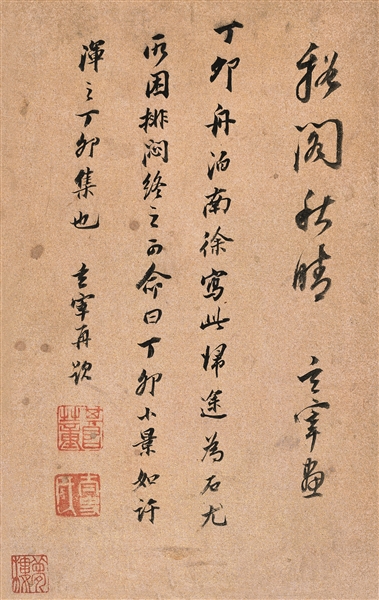 谿閣秋晴 玄宰畫
丁卯舟泊南徐寫此歸途為石尤
所困排悶終之可命曰丁卯小景如許
渾之丁卯集也 玄宰再題